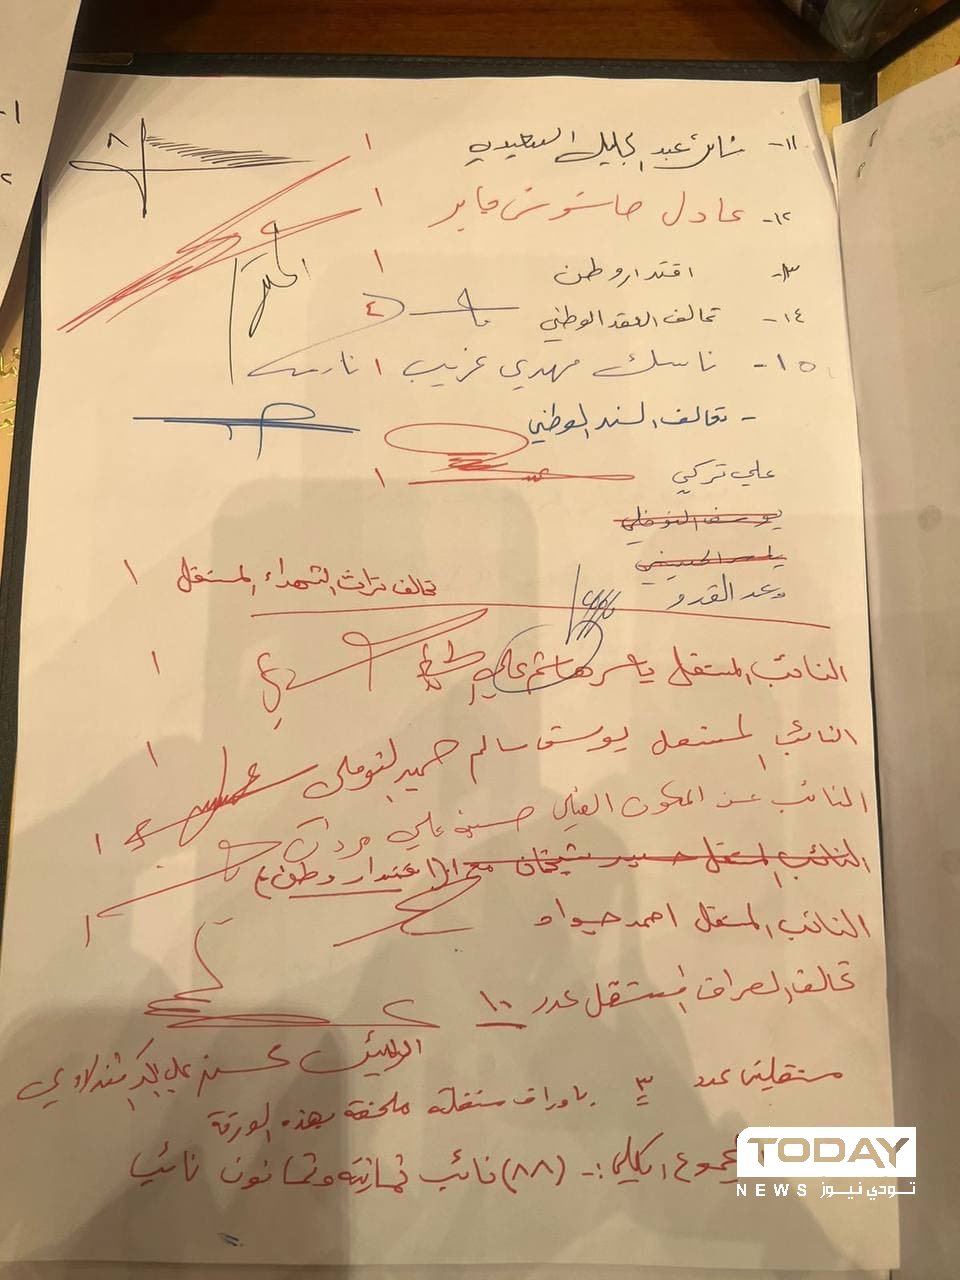 ١١- عبد الجليل السعيدي ١
١٢- عادل حاشوش جابر ١
١٣- اقتدار وطن ١
١٤- تحالف العقد الوطني ٤
١٥- ناسك مهدي غريب ١
- تحالف السند الوطني
علي تركي ١
يوسف النوفلي
ياسر الحسيني
وعد القدو
تحالف تراث الشهداء المستقل ١
النائب المستقل ياسر هاشم ١
النائب المستقل يوسف سالم حميد النوفلي ١
النائب عن المكون الفيلي حسين علي مردان ١
النائب المستقل حيدر شيخان مع (اقتدار وطن)
النائب المستقل احمد جواد ١
تحالف العراق المستقل عدد ١٠
الرئيس محسن علي اكبر المندلاوي
مستقلين عدد ٣ باوراق مستقلة ملحقة بهذه الورقة
المجموع الكلي :- (٨٨) نائب ثمانية وثمانون نائب
TODAY
NEWS تودي نيوز